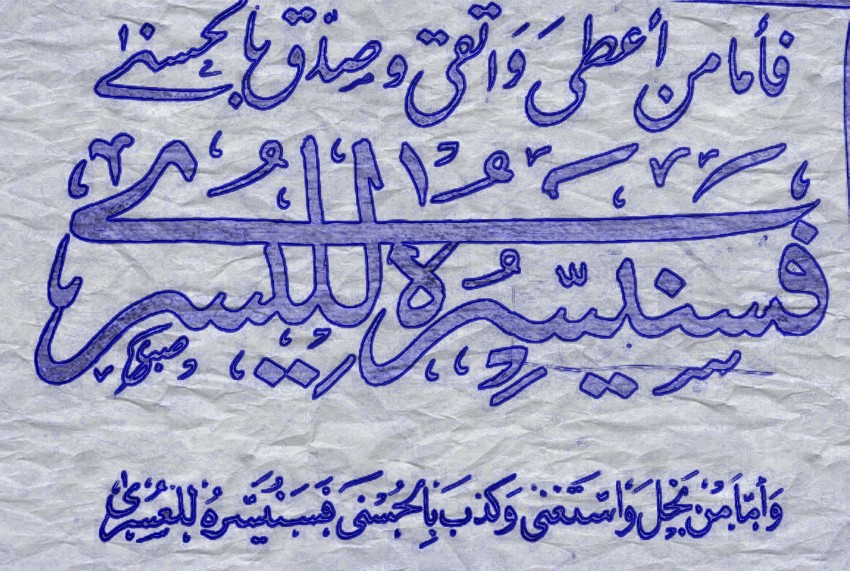 فأما من أعطى واتقى وصدق بالحسنى
فسنيسّره لليسرى
وَأَمّا مَنْ بَخِلَ وَاسْتَغْنى وَكذبَ بِالحُسْنى فَسَنُيَسّرهُ لِلعُسرى